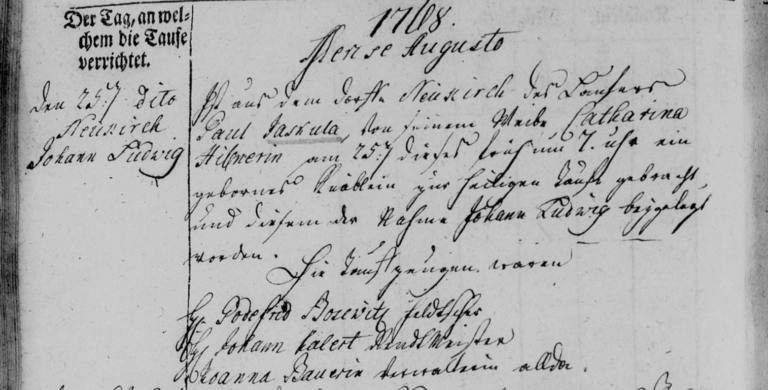 Der Tag, an wel-
chem die Taufe
verrichtet.
1768.
Mense Augusto
den 25.t dito
Neukirch
Johann Ludwig
Ist aus dem dorffe Neukirch des
Paul Jaskula, von seinem Weibe Catharina
Hilßnerin am 25.t dieses früh um 7. uhr ein
gebornes Knäblein zur heiligen Tauffe gebracht,
und diesem der Nahme Johann Ludwig beygelegt
worden.
Die Tauffzeugen waren
H. Godefrid feldtscher
H. Johann
Joanna Bauerin allda.